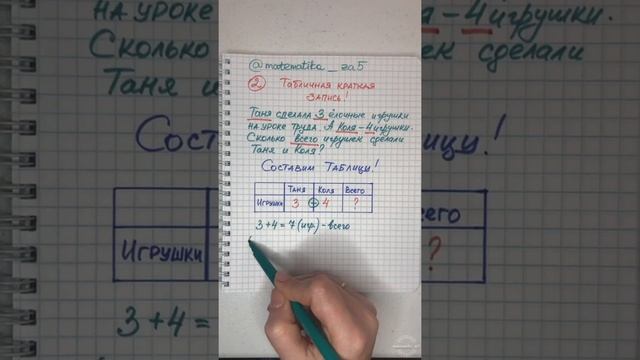 @matematika_za5
2 Табличная краткая
запись!
Таня сделала 3 ёлочные игрушки
на уроке труда. А Коля – 4 игрушки.
Сколько всего игрушек сделали
Таня и Коля?
Составим таблицу!
Таня Коля Всего
Игрушки 3 + 4 ?
3+4=7(игр) – всего